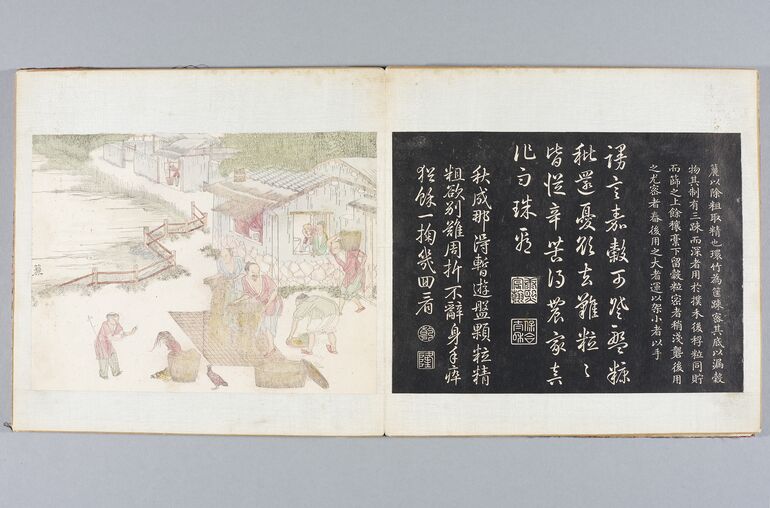 籭以除粗取精也環竹為筐疎密其底以漏穀
物其制有三疎而深者用於撲禾後稃粒同貯
而篩之上餘穰藁下留穀粒密者稍淺礱後用
之尤密者舂後用之大者運以架小者以手
謾言嘉穀可登盤糠
秕還憂欲去難粒〻
皆從辛苦得農家真
作白珠看
秋成那得暫遊盤顆粒精
粗欲別難周折不辭身手瘁
猶餘一掬幾回看
籭